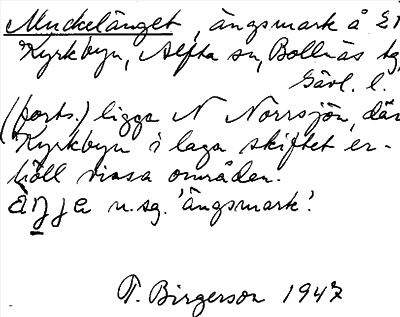 Muckelänget, ängsmark å
Kyrkbyn, Alfta sn, Bollnäs tg,
Gävl. l.
(forts.) ligga N Norrsjön, där
Kyrkbyn i laga skiftet er-
höll vissa områden.
n.sg. 'ängsmark'.
T. Birgerson 1947